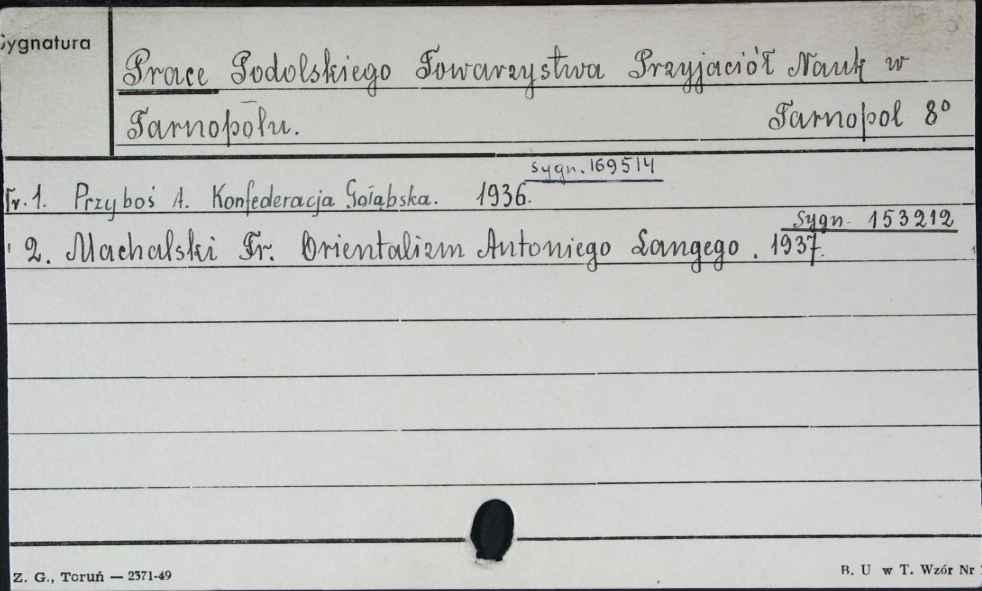 Sygnatura
Prace Podolskiego Towarzystwa Przyjaciół Nauk w
Tarnopolu. Tarnopol 8°
sygn. 169514
Nr. 1. Przyboś A. Konfederacja Gołąbska. 1936.
Sygn. 153212
" 2. Machalski Fr. Orientalizm Antoniego Langego. 1937.
Z. G., Toruń — 2371-49
B. U w T. Wzór Nr